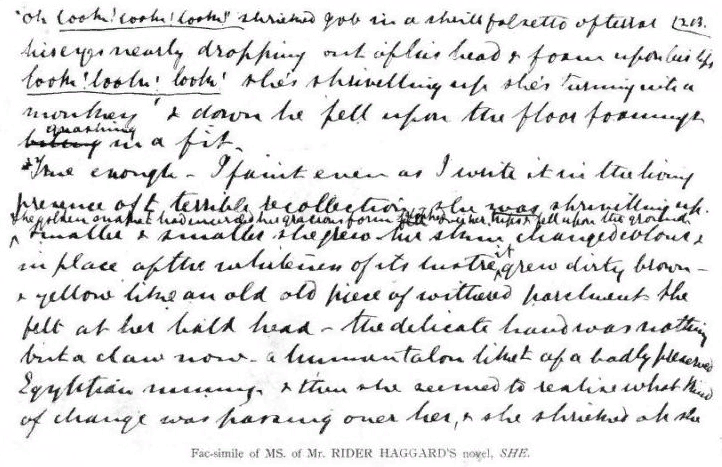 "oh look! look! look!" shrieked Job in a shrill falsetto of terror
his eyes nearly dropping out of his head & foam upon his lips
look! look! look! she's shrivelling up she's turning into a
monkey' & down he fell upon the floor foaming &
gnashing
biting in a fit.
True enough – I faint even as I write it in the living
presence of t terrible recollection, she was shrivelling up.
the golden snake that had encircled her gracious form her hips & fell upon the ground
smaller & smaller she grew her skin changed colour &
in place of the whiteness of its lustre it grew dirty brown –
& yellow like an old old piece of withered parchment she
felt at her bald head – the delicate hand was nothing
but a claw now – a human talon like t of a badly preserved
Egyptian mummy & then she seemed to realise what kind
of change was passing over her, & she shrieked ah she
Fac-simile of MS. of Mr. RIDER HAGGARD'S novel, SHE.